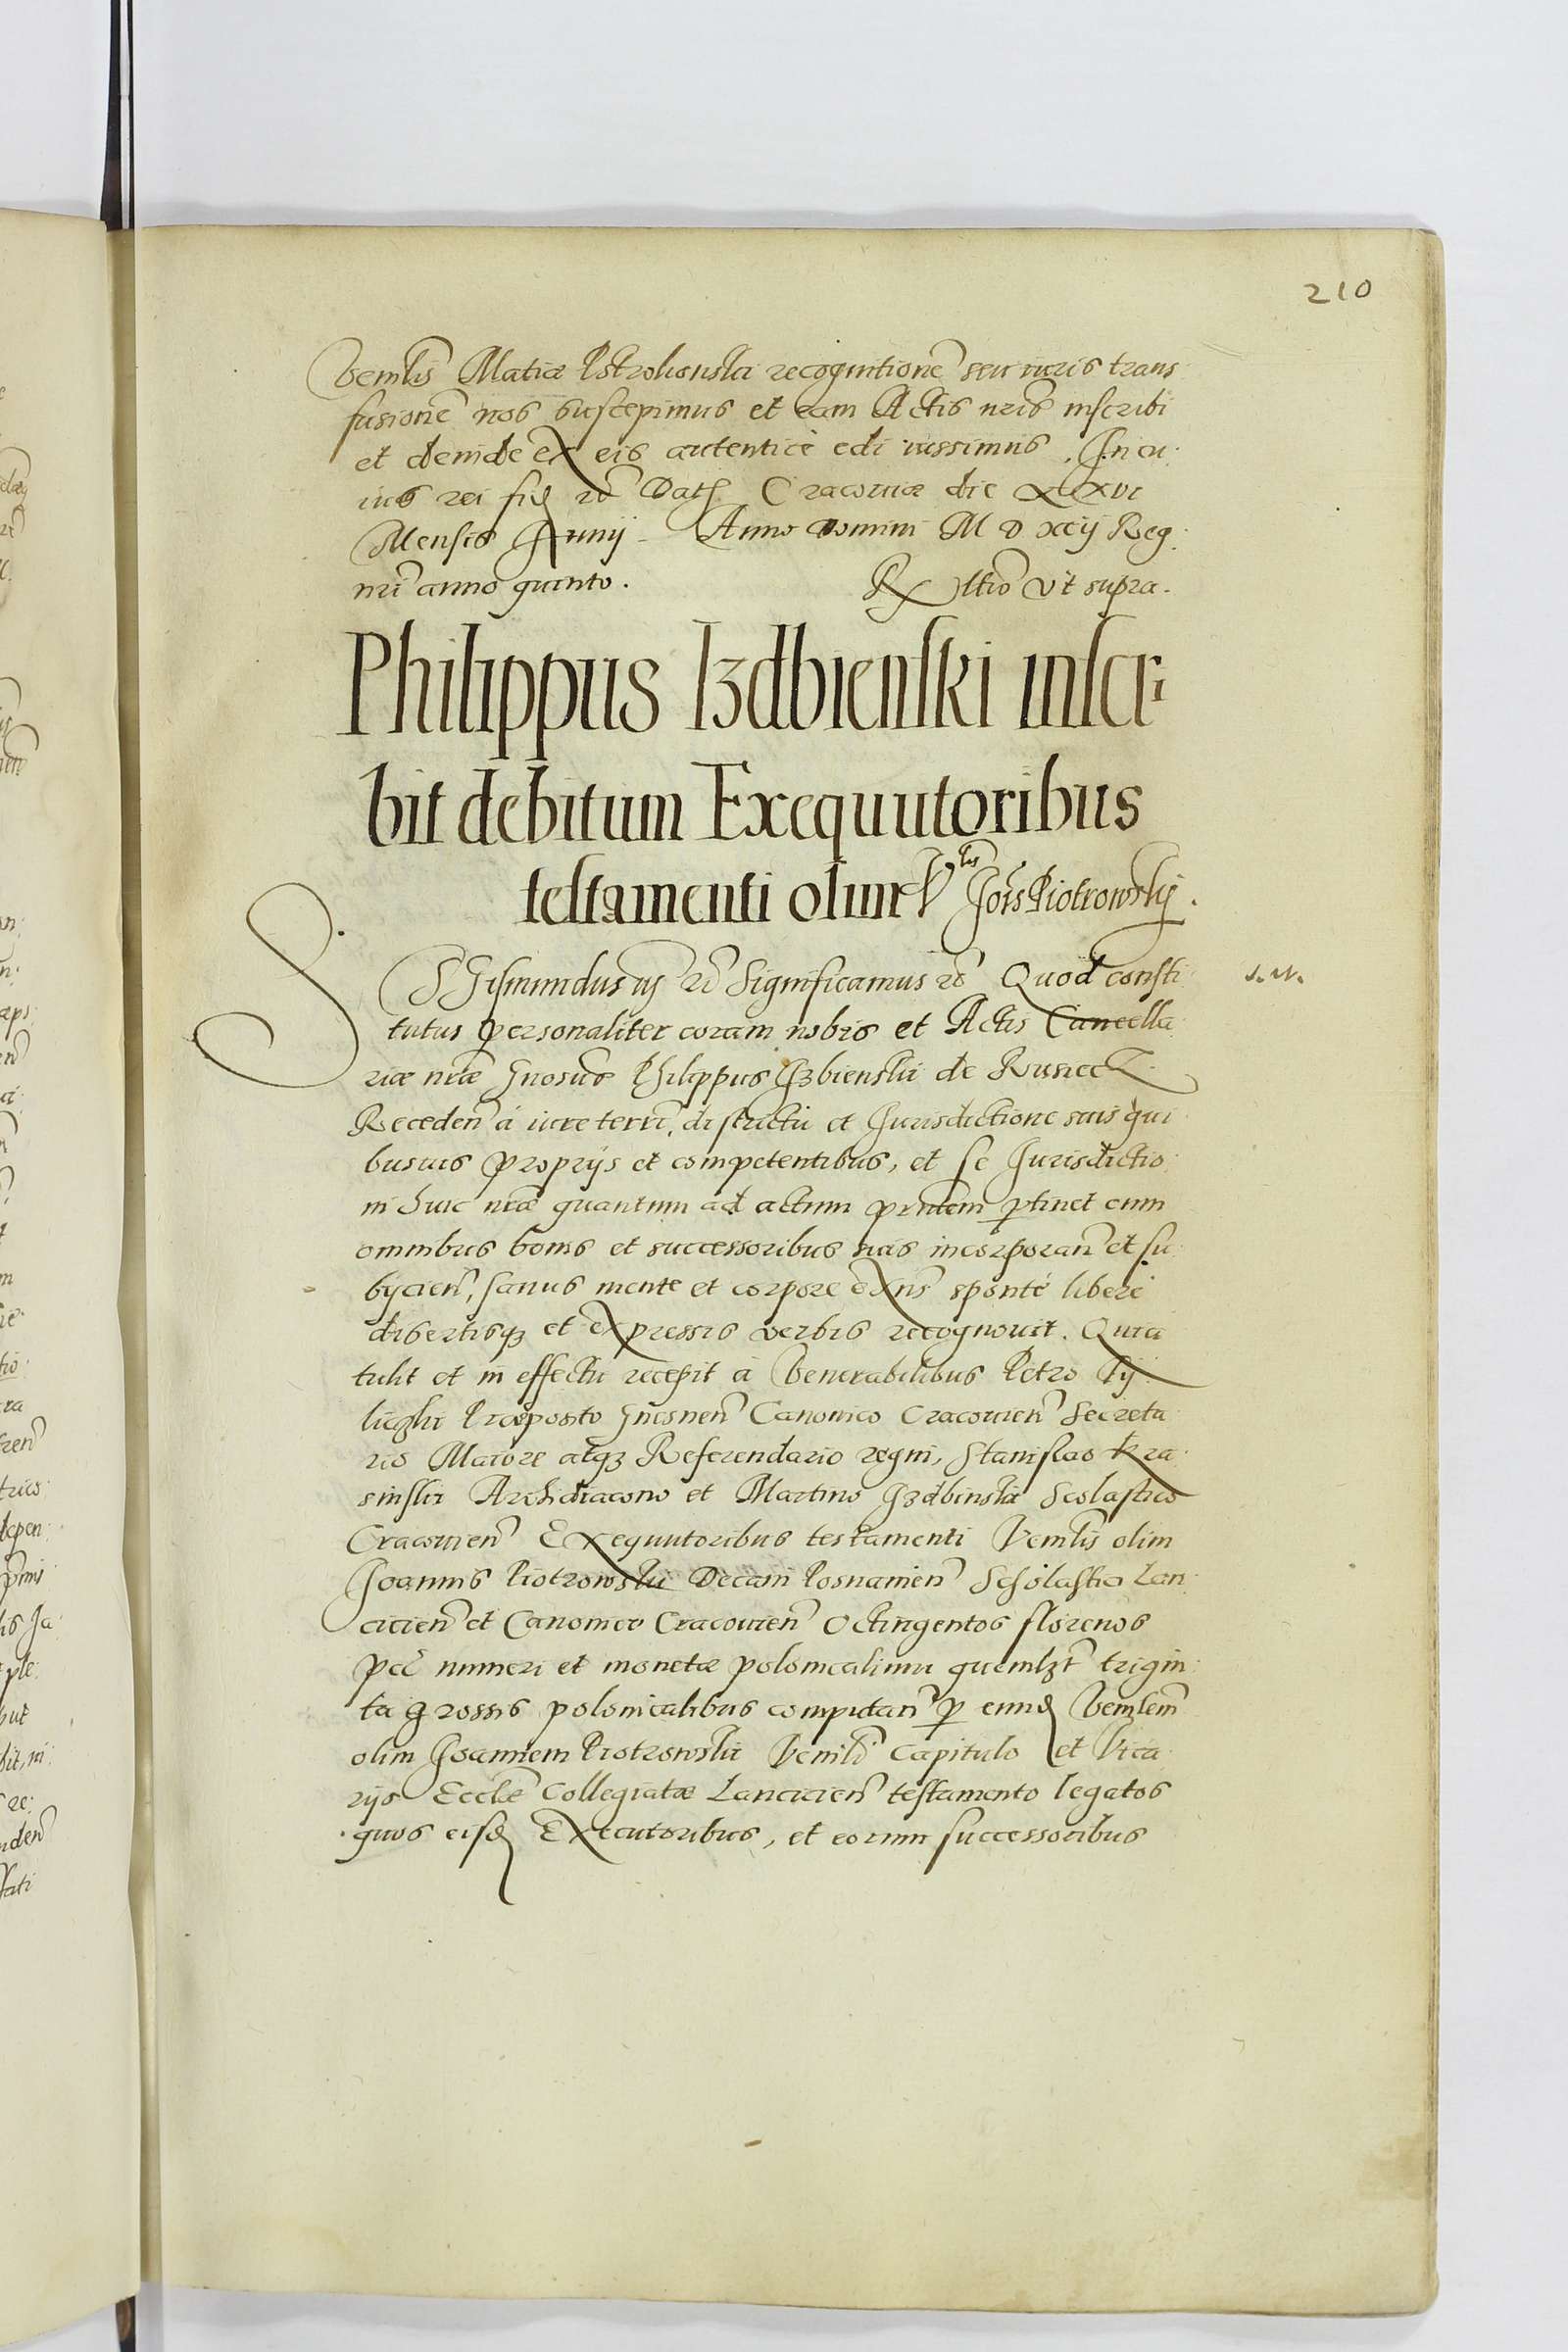 210
Venlis Matiæ Pstrokonski recognitionē seu iuris trans
fusionē nos suscepimus et eam Actis nris inscribi
et deinde ex eis autenticè edi iussimus. In cu:
ius rei fid rc Dat Cracoviæ die XXVI
Mensis Junij Anno Domini M D xcij Reg:
nri anno quinto. Rltio ut supra.
Philippus Izdbienski inscri
bit debitum Exequutoribus
testamenti olim V lis Jois Piotrowskij.
SGismundus iij rc Significamus rc Quod consti
s. n.
tutus personaliter coram nobis et Actis Cancella:
riæ nræ Gnosus Philippus Izbienski de Rusiec
Receden à iure terri, districtu et Jurisdictione suis qui
busuis proprijs et competentibus, et se Jurisdictio:
ni huic nræ quantum ad actum prntem ptinet cum
omnibus bonis et successoribus suis incorporan et su
bijcien, sanus mente et corpore exns sponté liberé
disertisq et expressis verbis recognovit. Quia
tulit et in effectu recepit à Venerabilibus Petro Tij
liczki Præposito Gnesnen Canonico Cracovien Secreta
rio Maiore atq Referendario regni, Stanislao Kra
sinski Archidiacono et Martino Izdbinski Scolastico
Cracovien Exequutoribus testamenti Venlis olim
Joannis Piotrowski Decani Posnanien Scholastici Lan
cicien et Canonico Cracovien Octingentos florenos
pec numeri et monetæ polonicalium quemlzt trigin
ta grossis polonicalibus computan p eund Venlem
olim Joannem Piotrowski Venli Capitulo et Vica
rijs Ecclæ Collegiatæ Lancicien testamento legatos
quos eisd Executoribus, et eorum successoribus